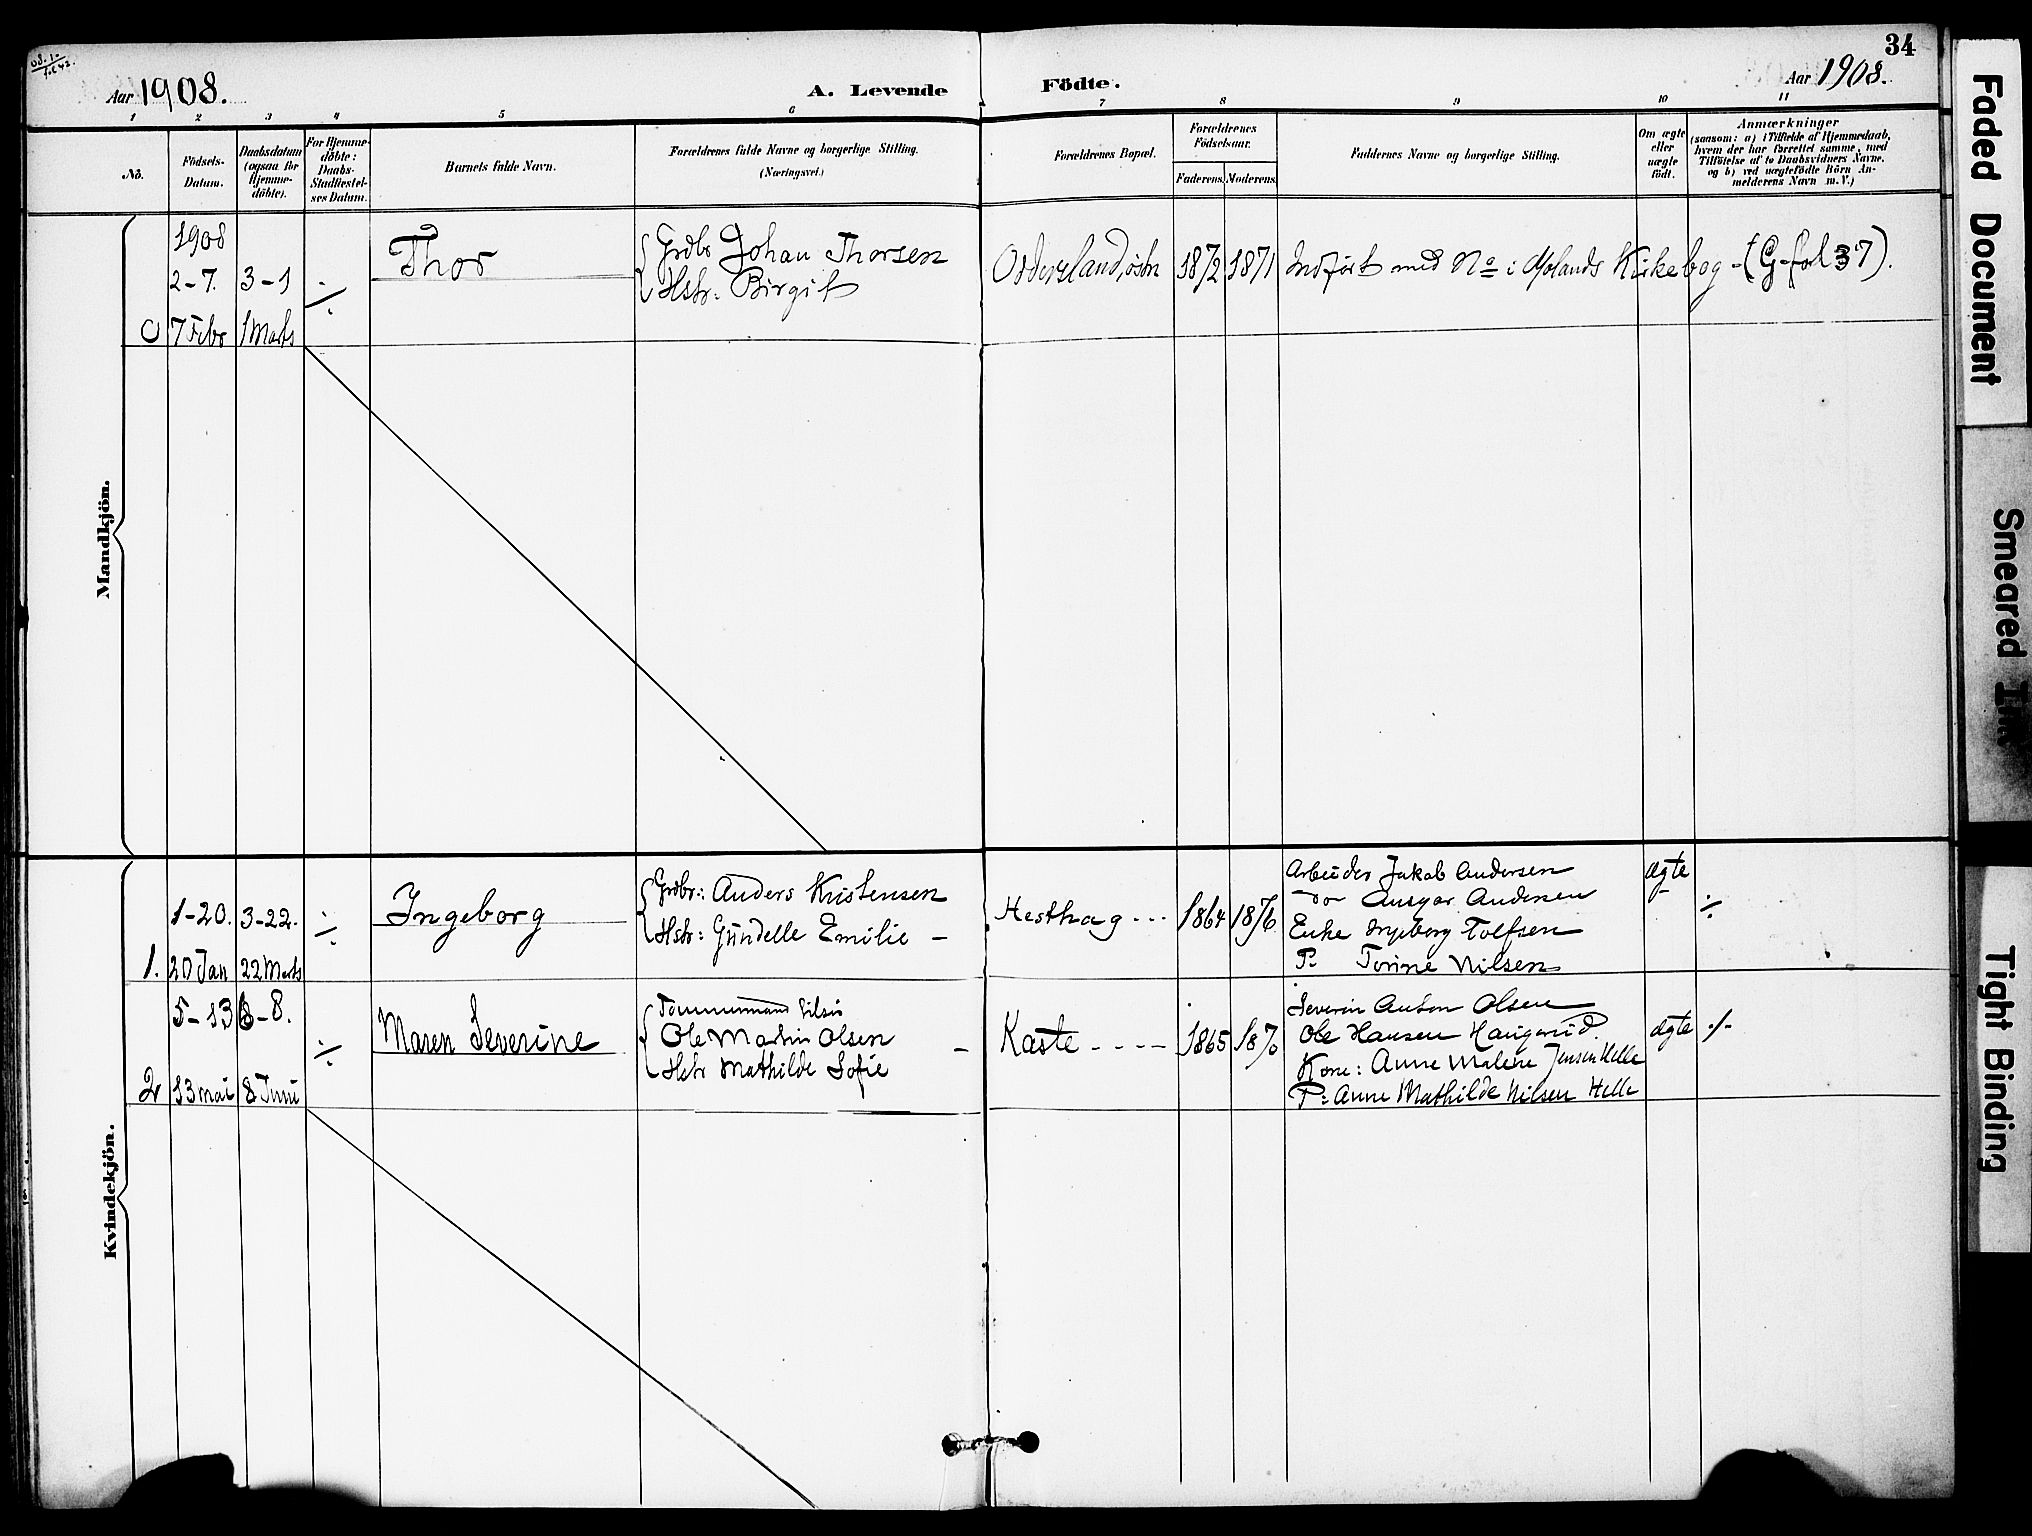 34
Aar 1908.
A. Levende Födte.
Aar 1908.
1 2 3 4 5 6 7 8 9 10 11
No.
Födsels-
Datum.
Daabsdatum
(ogsaa for
Hjemme-
döbte).
For Hjemme-
döbte:
Daabs-
Stadfæstel-
ses Datum.
Barnets fulde Navn.
Forældrenes fulde Navne og borgerlige Stilling.
(Næringsvei.)
Forældrenes Bopæl.
Forældrenes
Födselsaar.
Faderens. Moderens.
Faddernes Navne og borgerlige Stilling.
Om ægte
eller
uægte
födt.
Anmærkninger
(saasom: a) i Tilfælde af Hjemmedaab,
hvem der har forrettet samme, med
Tilföielse af to Daabsvidners Navne.
og b) ved uægtefödte Börn An-
melderens Navn m.V.)
Mandkjön.
1908
2-7. 3-1 ÷
0 7 Febr 1 Marts
Thor
Grdbr Johan Thorsen
Hstr: Birgit
Odderslandøstn 1872 1871
Indført med No i Mølands Kirkebog - (G-fol 37).
Kvindekjön.
1-20. 3-22. ÷
1. 20 Jan 22 Marts
Ingeborg
Grdbr: Anders Kristensen
Hstr: Gundelle Emilie -
Hesthag --- 1864 1876
Arbeider Jakob Andersen
do Ansgar Andersen
Enke Ingeborg Tolfsen
P: Torine Nilsen
ægte ÷
5-13 6-8. ÷
2 13 mai 8 Juni
Maren Severine
Tømmermand
Ole Martin Olsen
Hstr Mathilde Sofie -
Kaste ---- 1865 1870
Severin Anton Olsen
Ole Hansen Haugerud
Kone: Anne Malene Jensen Helle
P: Anne Mathilde Nilsen Helle
ægte ./-
Faded Document
Smeared Ink
Tight Binding